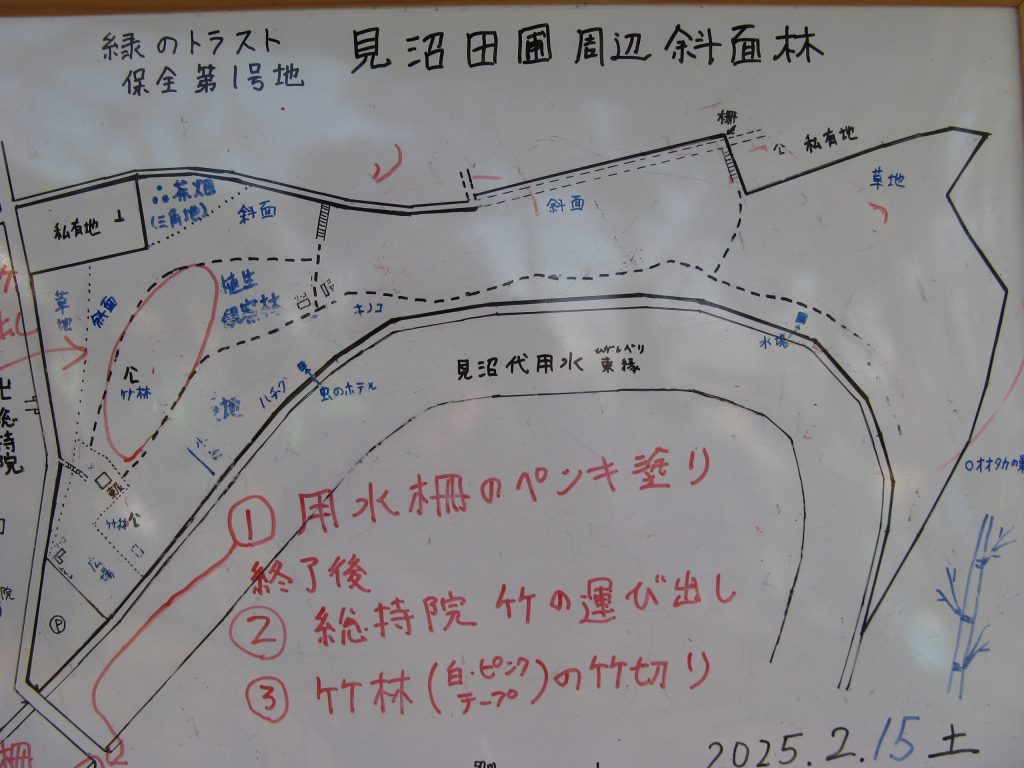 緑のトラスト
保全第1号地
見沼田圃周辺斜面林
柵
公
私有地
茶畑
(三角地)
斜面
斜面
草地
私有地
草地
斜面
植生
キノコ
公
竹林
虫のホテル
見沼代用水 東縁
水場
総持院
竹林 公
広場
P
オオタカの巣
① 用水柵のペンキ塗り
終了後
② 総持院 竹の運び出し
③ 竹林(白・ピンクテープ)の竹切り
柵
2025.2.15土
50m